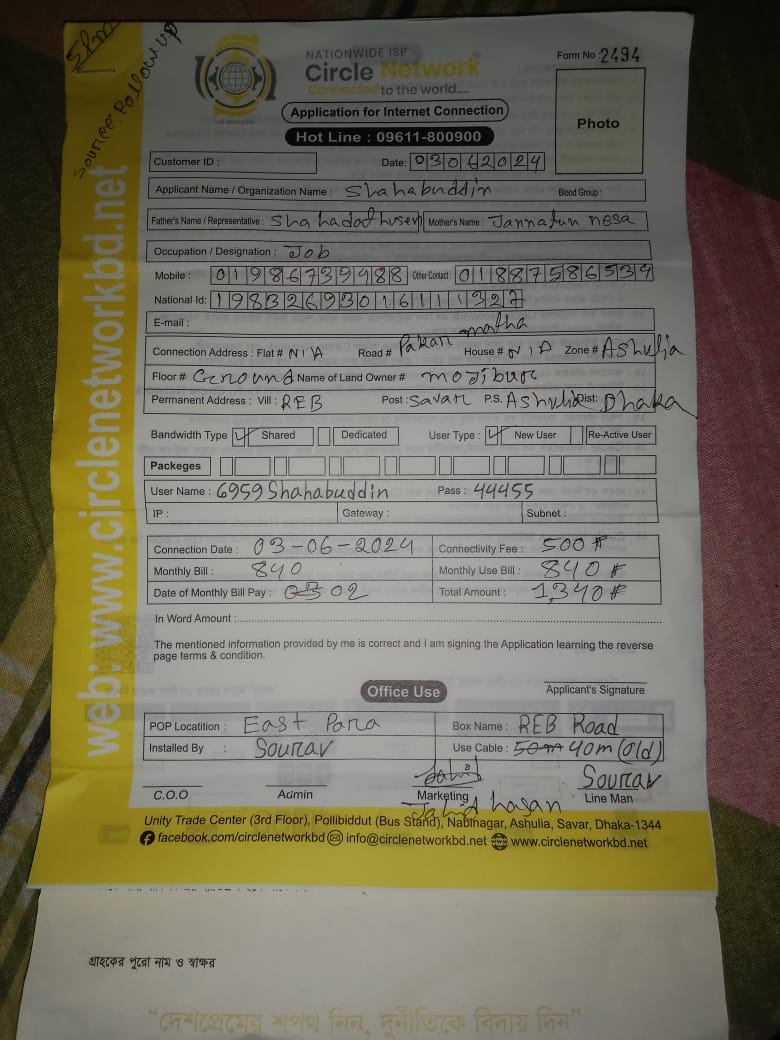 Source: Follow up
NATIONWIDE ISP
Circle Network
Connected to the world....
Form No : 2494
Application for Internet Connection
Photo
Hot Line : 09611-800900
Customer ID :
Date: 03062024
Applicant Name / Organization Name : Shahabuddin
Blood Group :
Father's Name / Representative : Shahadat husen Mother's Name : Jannatun nesa
Occupation / Designation : Job
Mobile : 01986739488 Other Contact : 01887586534
National Id: 19832693016111327
E-mail :
Connection Address : Flat # N/A Road # Pakar matha House # N/A Zone # Ashulia
Floor # Ground Name of Land Owner # mojibur
Permanent Address : Vill : REB Post : Savar P.S. Ashulia Dist: Dhaka
Bandwidth Type ✓ Shared Dedicated User Type : ✓ New User Re-Active User
Packeges
User Name : 6959Shahabuddin Pass : 44455
IP : Gateway : Subnet :
Connection Date : 03-06-2024 Connectivity Fee : 500
Monthly Bill : 840 Monthly Use Bill : 840
Date of Monthly Bill Pay : 02 Total Amount : 1,340
In Word Amount :
The mentioned information provided by me is correct and I am signing the Application learning the reverse
page terms & condition.
Office Use
Applicant's Signature
POP Locatition : East Para Box Name : REB Road
Installed By : Sourav Use Cable : 50m 40m (old)
Sourav
C.O.O Admin Marketing Line Man
Jahid hasan
Unity Trade Center (3rd Floor), Pollibiddut (Bus Stand), Nabinagar, Ashulia, Savar, Dhaka-1344
facebook.com/circlenetworkbd info@circlenetworkbd.net www.circlenetworkbd.net
web: www.circlenetworkbd.net
গ্রাহকের পুরো নাম ও স্বাক্ষর
“দেশপ্রেমের শপথ নিন, দুর্নীতিকে বিদায় দিন”